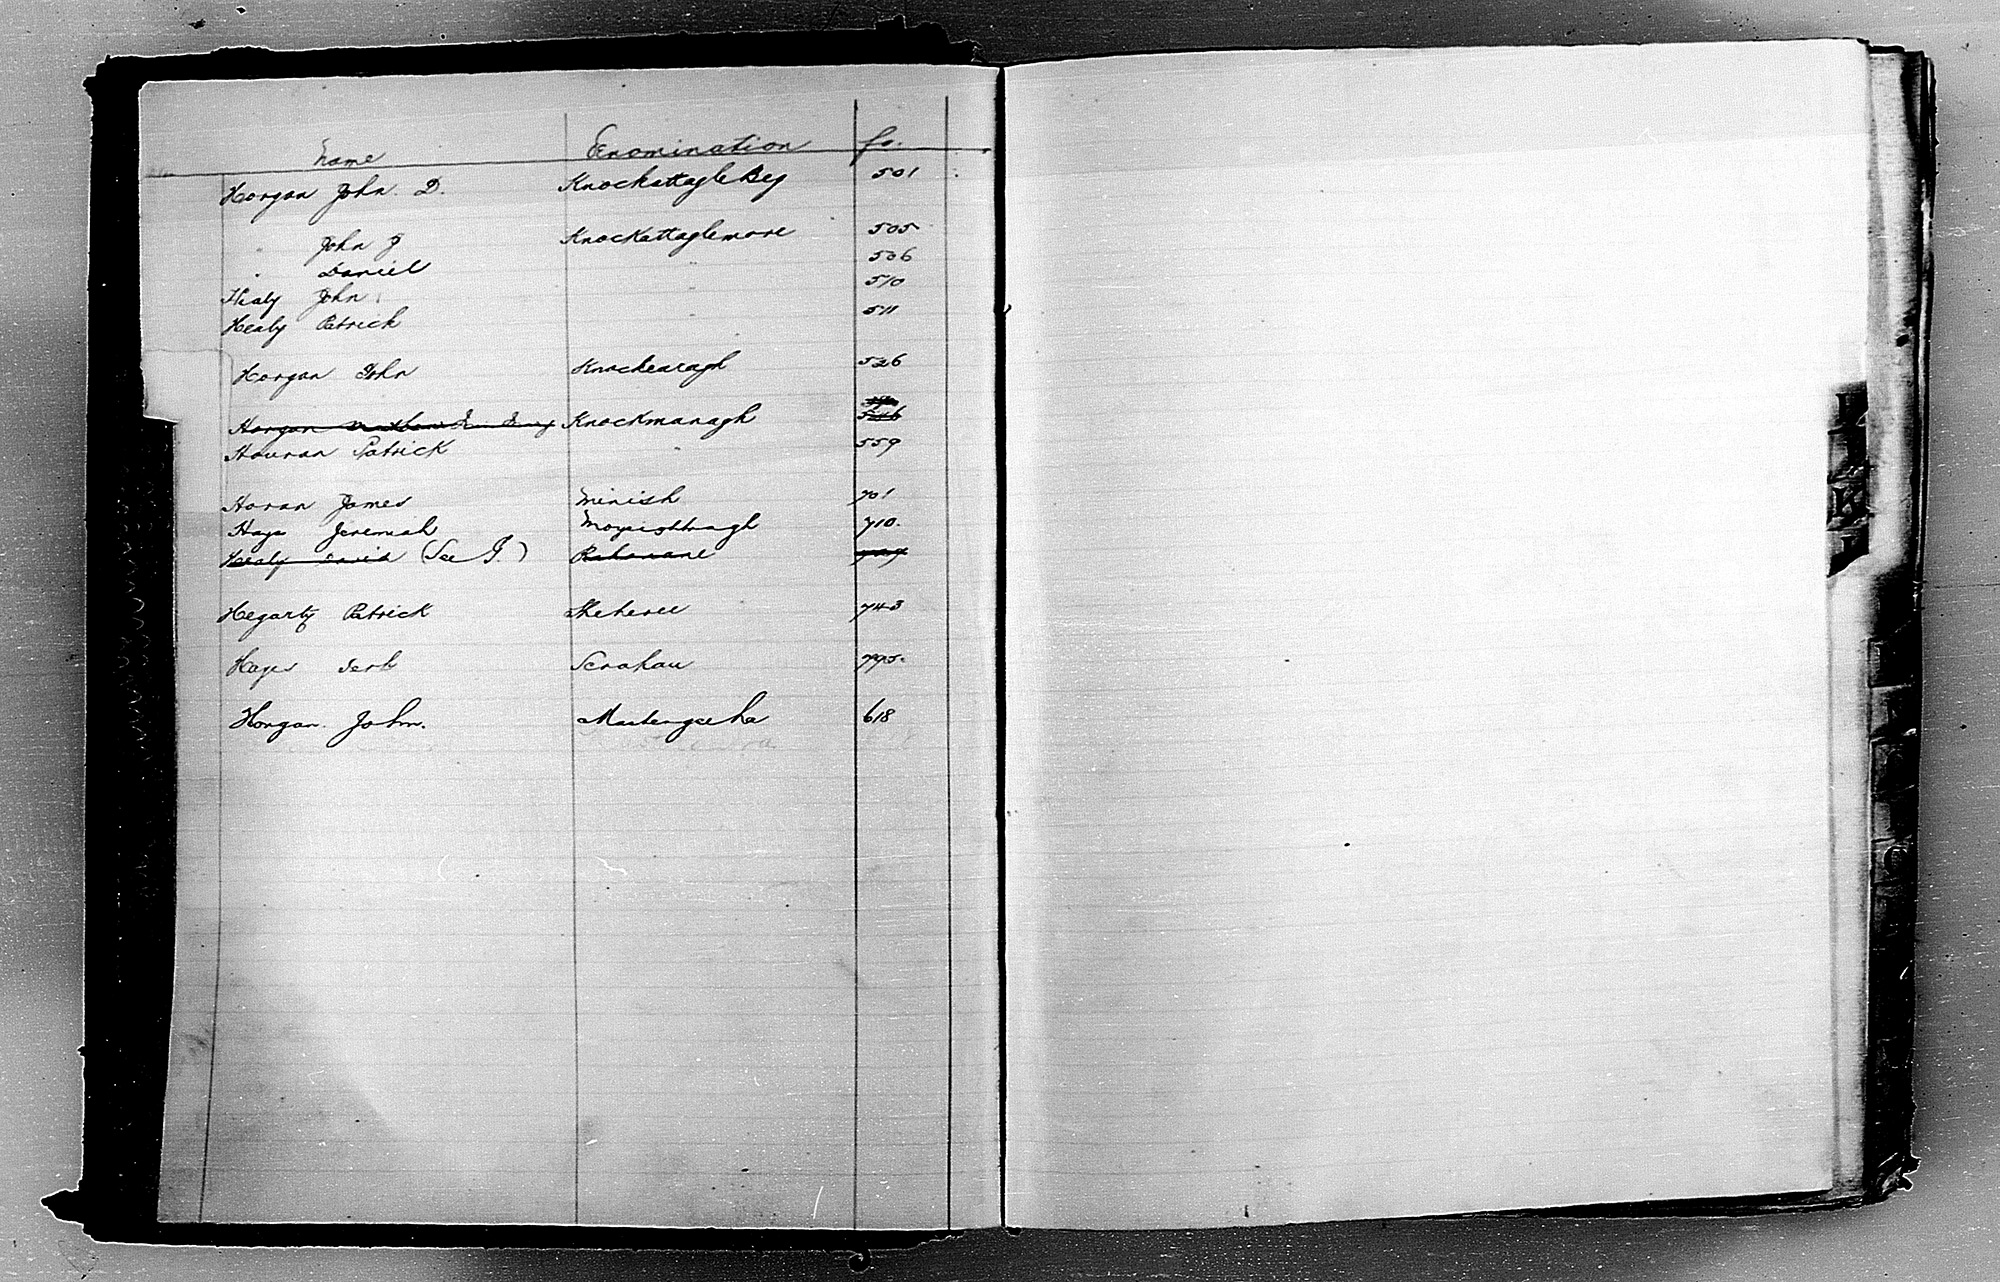 Name Denomination fo.
Horgan John. D. Knockattagle Beg 501
" John J Knockattaglemore 505
" Daniel 506
Healy John 510
Healy Patrick 511
Horgan John Knockearagh 526
Horgan Knockmanagh 546
Houran Patrick 559
Horan James Minish 701
Hays Jeremiah Moyeightragh 710.
Healy David (See J.) Rahanane
Hegarty Patrick Sheheree 743
Hayes Jerh Scrahan 795.
Horgan. John. Mastergeeha 618
K